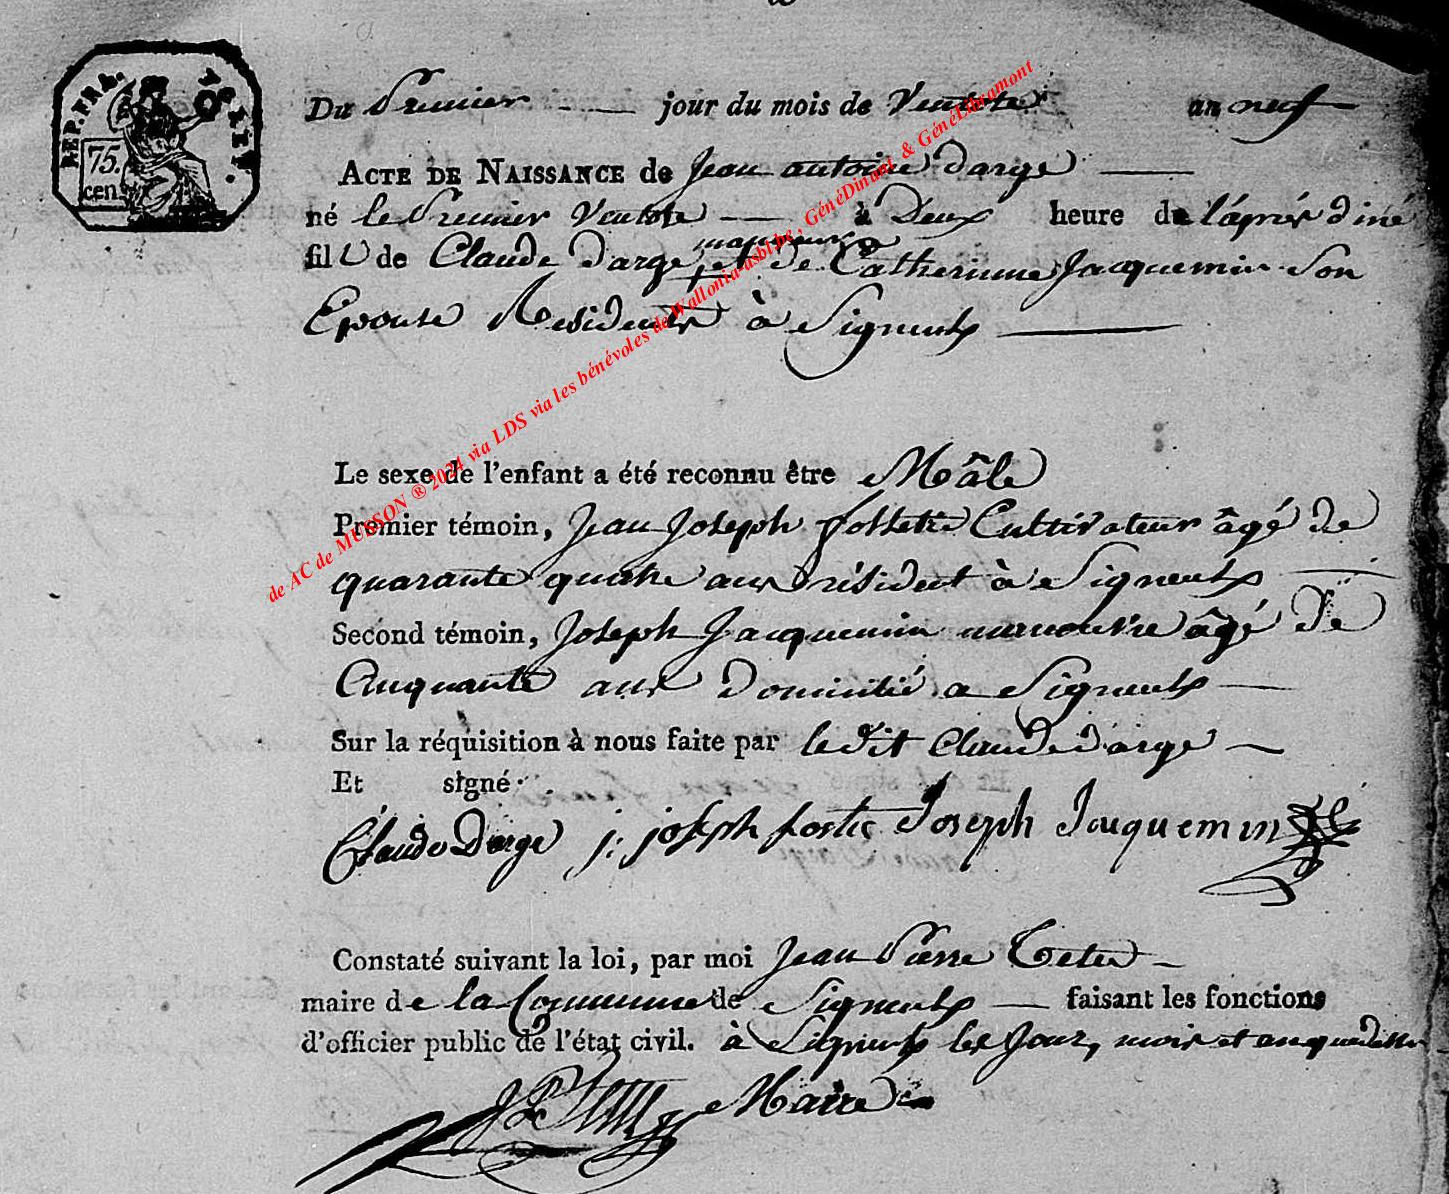 REP. FRA.
75.
cen.
Du Premier jour du mois de Ventose an neuf
ACTE DE NAISSANCE de Jean antoine darge
né le Premier Ventose à Deux heure de l'aprés diné
manoeuvre
fils de Claude darge, et de Catherinne Jacquemin Son
Epouse Residents à Signeulx
Le sexe de l'enfant a été reconnu être Mâle
Premier témoin, Jean Joseph Cultivateur âgé de
quarante quatre ans résident à Signeulx
Second témoin, Joseph Jacquemin manouvre âgé de
Cinquante ans Domicilié a Signeulx
Sur la réquisition à nous faite par ledit Claude darge
Et signé
Claude Darge j: joseph Joseph Jacquemin
Constaté suivant la loi, par moi Jean Pierre
maire de la Commune de Signeulx faisant les fonctions
d'officier public de l'état civil. à Signeulx les Jour, mois et an que dessus
Maire
de AC de MUSSON ® 2024 via LDS via les bénévoles de Wallonia-asbl.be, GénéDinant & GénéLibramont